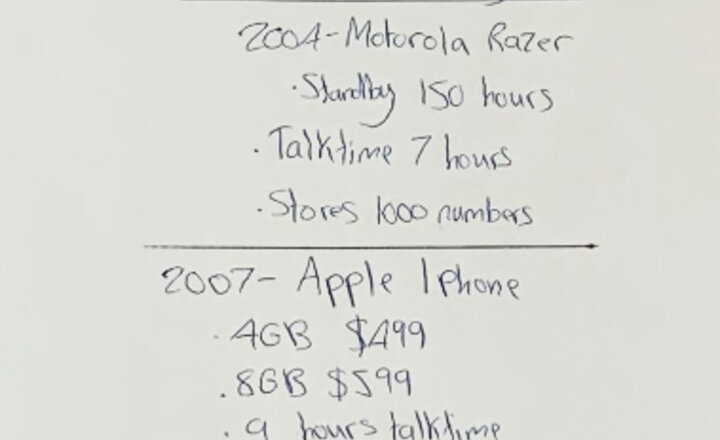 2004-Motorola Razer
·Standby 150 hours
·Talktime 7 hours
·Stores 1000 numbers
2007- Apple Iphone
·4GB $499
·8GB $599
·9 hours talktime